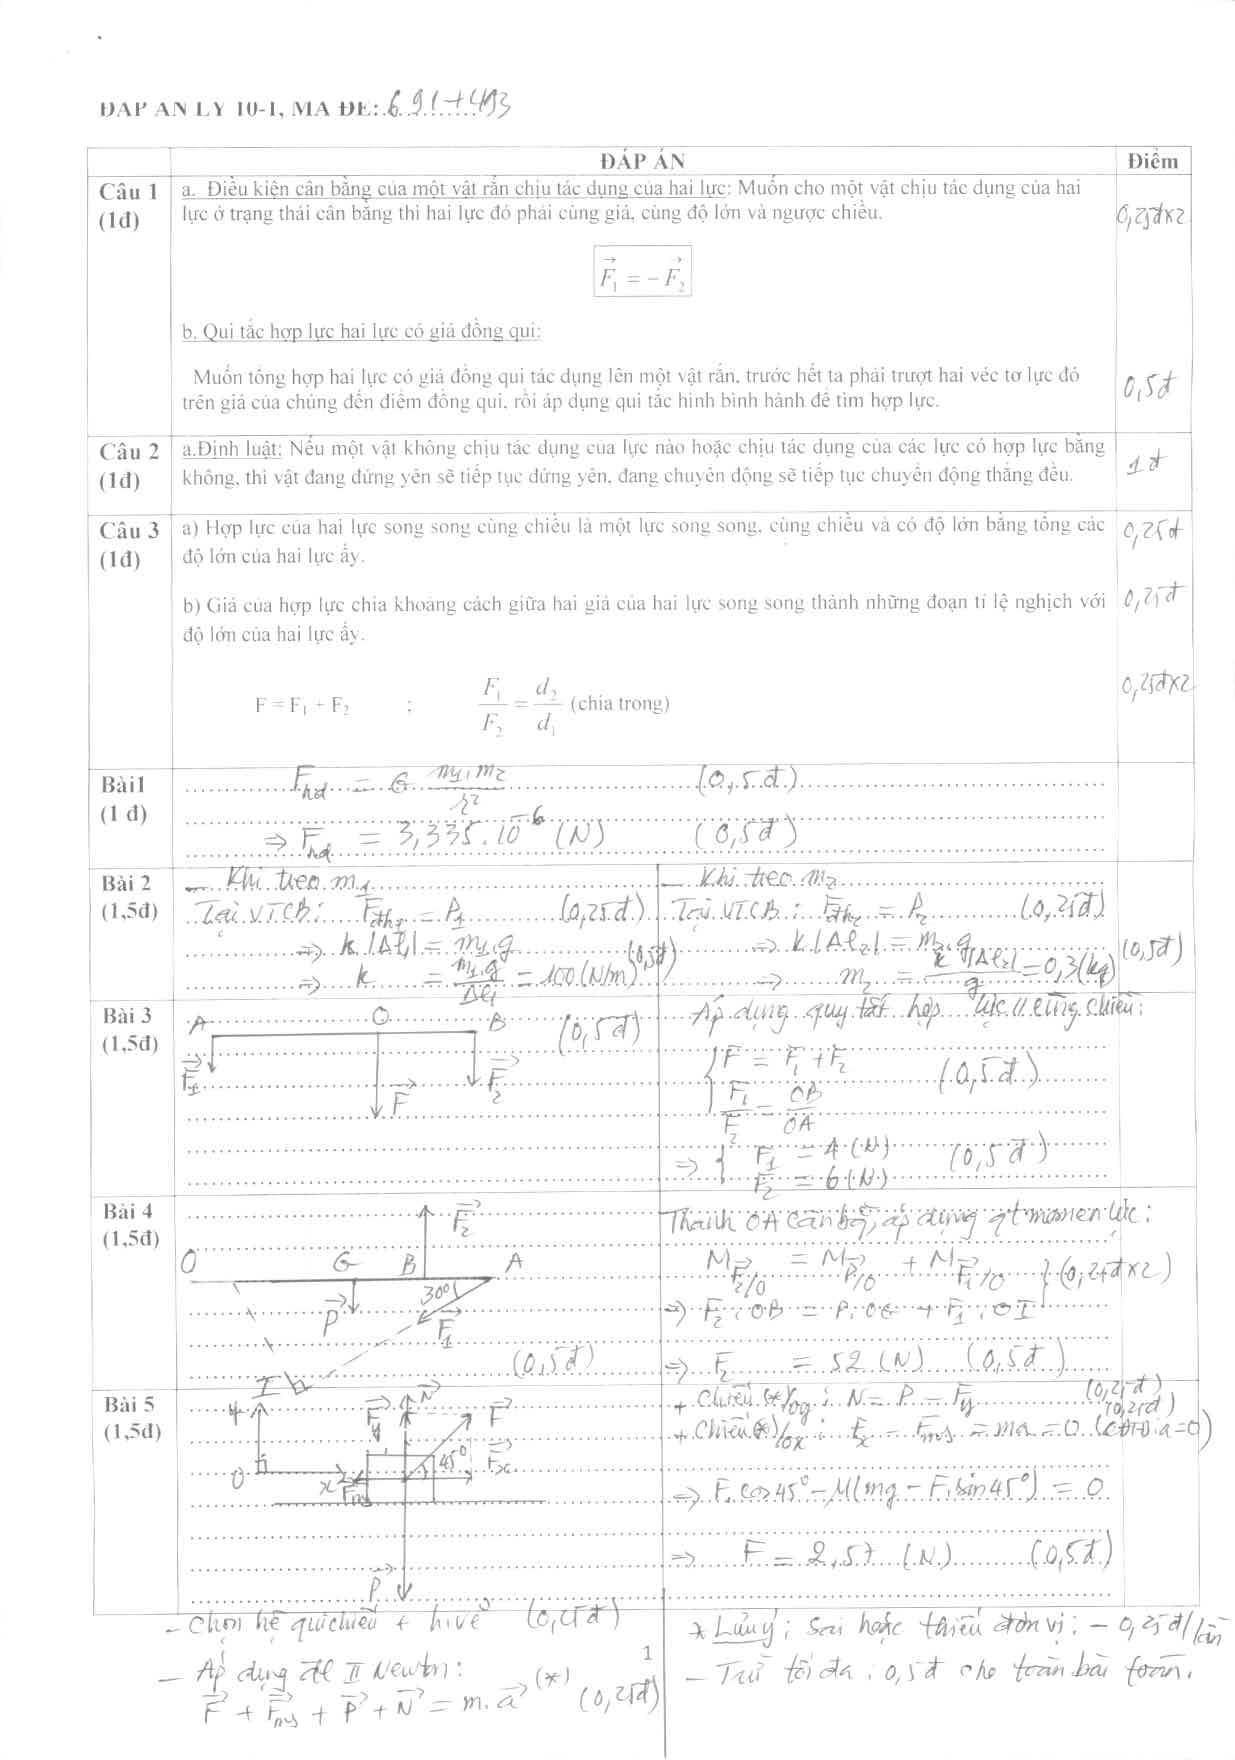 ĐÁP ÁN LÝ 10-1, MÃ ĐỀ: 691+493
ĐÁP ÁN Điểm
Câu 1 (1đ)
a. Điều kiện cân bằng của một vật rắn chịu tác dụng của hai lực: Muốn cho một vật chịu tác dụng của hai
lực ở trạng thái cân bằng thì hai lực đó phải cùng giá, cùng độ lớn và ngược chiều.
0,25đx2
F₁ = − F₂
b. Qui tắc hợp lực hai lực có giá đồng qui:
Muốn tổng hợp hai lực có giá đồng qui tác dụng lên một vật rắn, trước hết ta phải trượt hai véc tơ lực đó
trên giá của chúng đến điểm đồng qui, rồi áp dụng qui tắc hình bình hành để tìm hợp lực.
0,5đ
Câu 2 (1đ)
a.Định luật: Nếu một vật không chịu tác dụng của lực nào hoặc chịu tác dụng của các lực có hợp lực bằng
không, thì vật đang đứng yên sẽ tiếp tục đứng yên, đang chuyển động sẽ tiếp tục chuyển động thẳng đều.
1đ
Câu 3 (1đ)
a) Hợp lực của hai lực song song cùng chiều là một lực song song, cùng chiều và có độ lớn bằng tổng các
độ lớn của hai lực ấy.
0,25đ
b) Giá của hợp lực chia khoảng cách giữa hai giá của hai lực song song thành những đoạn tỉ lệ nghịch với
độ lớn của hai lực ấy.
0,25đ
F = F₁ + F₂ ; F₁/F₂ = d₂/d₁ (chia trong)
0,25đx2
Bài1 (1 đ)
Fhd = G m₁.m₂/r² (0,5đ)
⇒ Fhd = 3,335.10⁻⁶ (N) (0,5đ)
Bài 2 (1,5đ)
- Khi treo m₁
Tại VTCB: Fđh₁ = P₁ (0,25đ)
⇒ k|Δl₁| = m₁.g
⇒ k = m₁.g/Δl₁ = 100 (N/m) (0,5đ)
- Khi treo m₂
Tại VTCB: Fđh₂ = P₂ (0,25đ)
⇒ k|Δl₂| = m₂.g
⇒ m₂ = k|Δl₂|/g = 0,3(kg) (0,5đ)
Bài 3 (1,5đ)
A O B (0,5đ)
F₁ F F₂
Áp dụng quy tắt hợp lực // cùng chiều:
F = F₁ + F₂
F₁/F₂ = OB/OA (0,5đ)
⇒ F₁ = 4 (N)
F₂ = 6 (N) (0,5đ)
Bài 4 (1,5đ)
F₂
O G B A
30°
P F₁
I (0,5đ)
Thanh OA cân bg, áp dụng qt momen lực:
M F₂/O = M P/O + M F₁/O
⇒ F₂.OB = P.OG + F₁.OI (0,25đx2)
⇒ F₂ = 52 (N) (0,5đ)
Bài 5 (1,5đ)
y Fy N F
45° Fx
O x Fms
P
+ Chiếu (*)/oy: N = P − Fy (0,25đ)
+ Chiếu (*)/ox: Fx − Fms = ma = 0 (CĐTĐ: a=0) (0,25đ)
⇒ F.cos45° − μ(mg − F.sin45°) = 0
⇒ F = 2,57 (N) (0,5đ)
- Chọn hệ qui chiếu + h.vẽ (0,25đ)
- Áp dụng đl II Newtn:
F + Fms + P + N = m.a (*) (0,25đ)
1
* Lưu ý: Sai hoặc thiếu đơn vị: − 0,25đ/lần
- Trừ tối đa 0,5đ cho toàn bài toán.